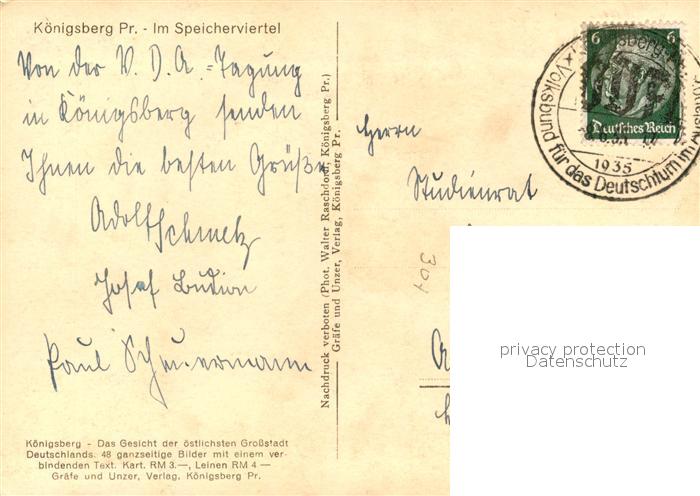 Königsberg Pr. - Im Speicherviertel
Von der V. D. A. = Tagung
in Königsberg senden
Ihnen die besten Grüße
Adolf Schmelz
Josef
Paul Scheuermann
Königsberg - Das Gesicht der östlichsten Großstadt
Deutschlands. 48 ganzseitige Bilder mit einem ver-
bindenden Text. Kart. RM 3.—, Leinen RM 4 —
Gräfe und Unzer, Verlag, Königsberg Pr.
Nachdruck verboten (Phot. Walter Raschdorf, Königsberg Pr.)
Gräfe und Unzer, Verlag, Königsberg Pr.
Herrn
Studienrat
304
6 6
Deutsches Reich
1935
Volksbund für das Deutschtum im
privacy protection
Datenschutz